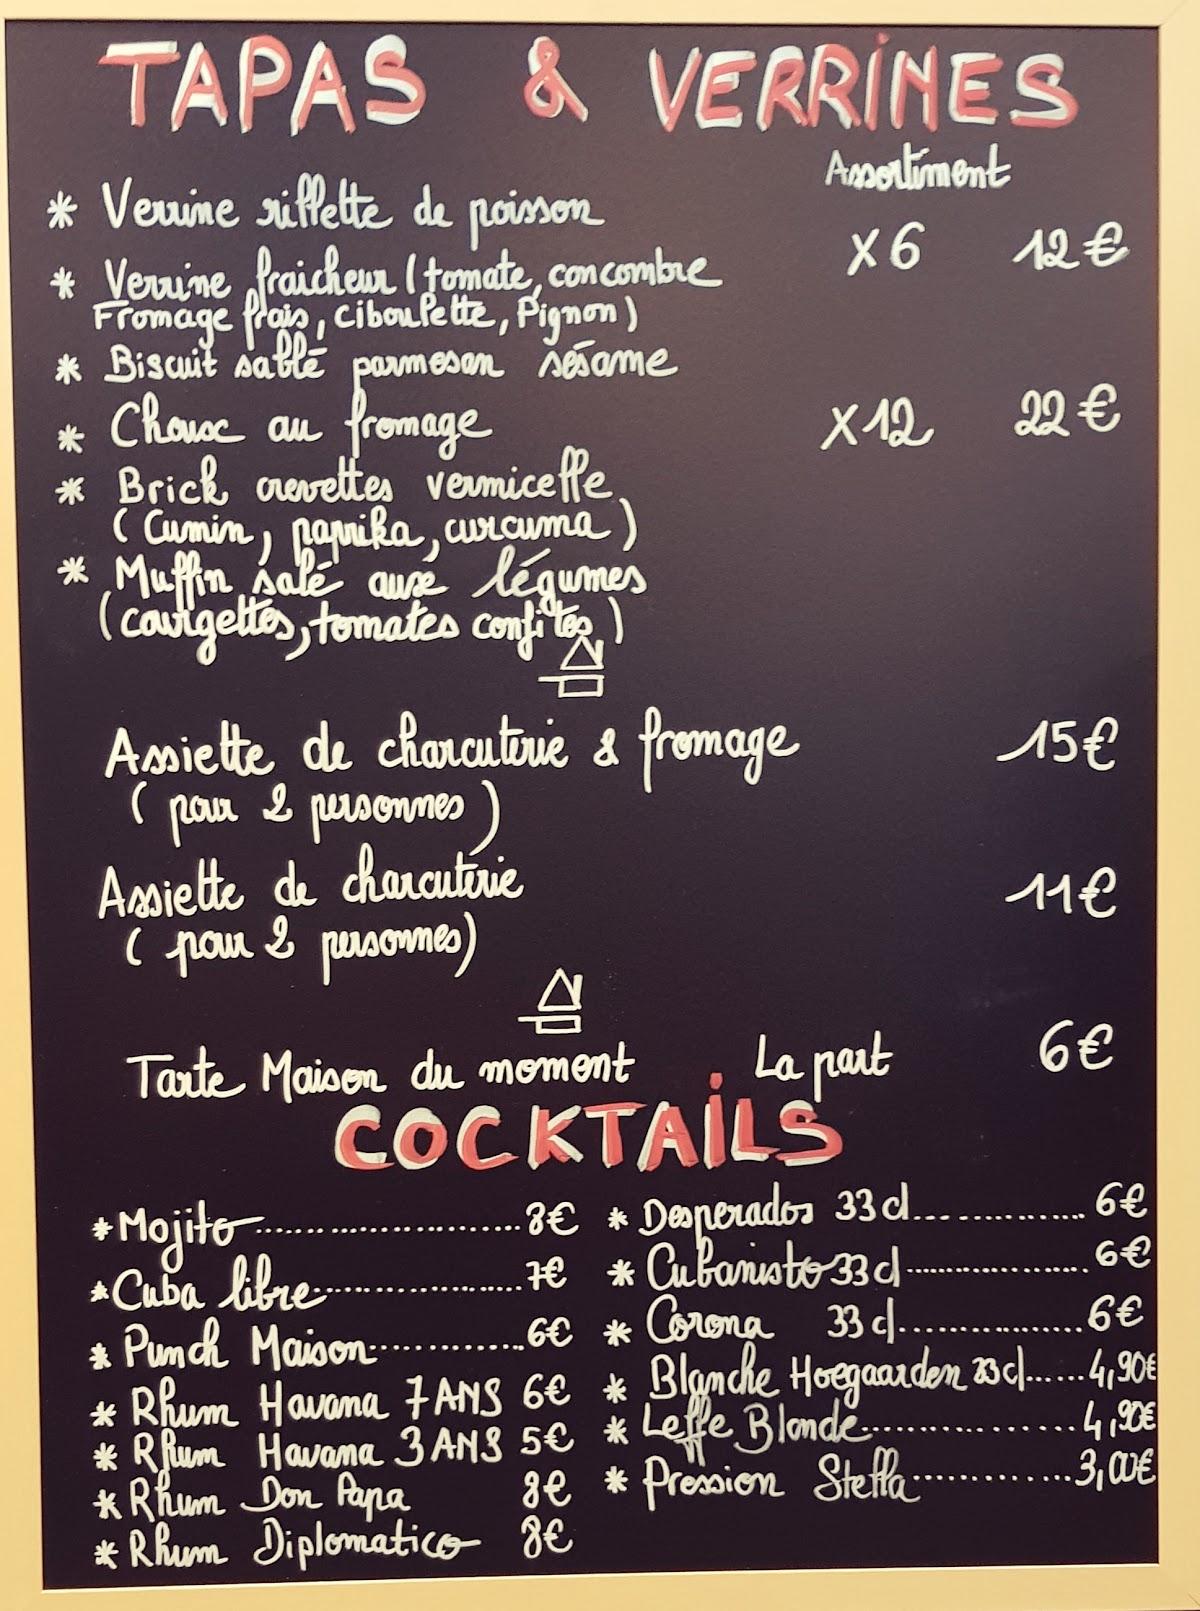 TAPAS & VERRINES
Assortiment
* Verrine rillette de poisson
* Verrine fraicheur (tomate, concombre
Fromage frais, ciboulette, Pignon)
x6 12€
* Biscuit sablé parmesan sésame
* Choux au fromage
x12 22€
* Brick crevettes vermicelle
(Cumin, paprika, curcuma)
* Muffin salé aux légumes
(courgettes, tomates confites)
Assiette de charcuterie & fromage 15€
(pour 2 personnes)
Assiette de charcuterie 11€
(pour 2 personnes)
Tarte Maison du moment La part 6€
COCKTAILS
* Mojito......................8€
* Cuba libre......................7€
* Punch Maison...............6€
* Rhum Havana 7 ANS 6€
* Rhum Havana 3 ANS 5€
* Rhum Don Papa 8€
* Rhum Diplomatico 8€
* Desperados 33cl...............6€
* Cubanisto 33cl..................6€
* Corona 33cl..................6€
* Blanche Hoegaarden 33cl......4,90€
* Leffe Blonde..................4,90€
* Pression Stella.............3,00€